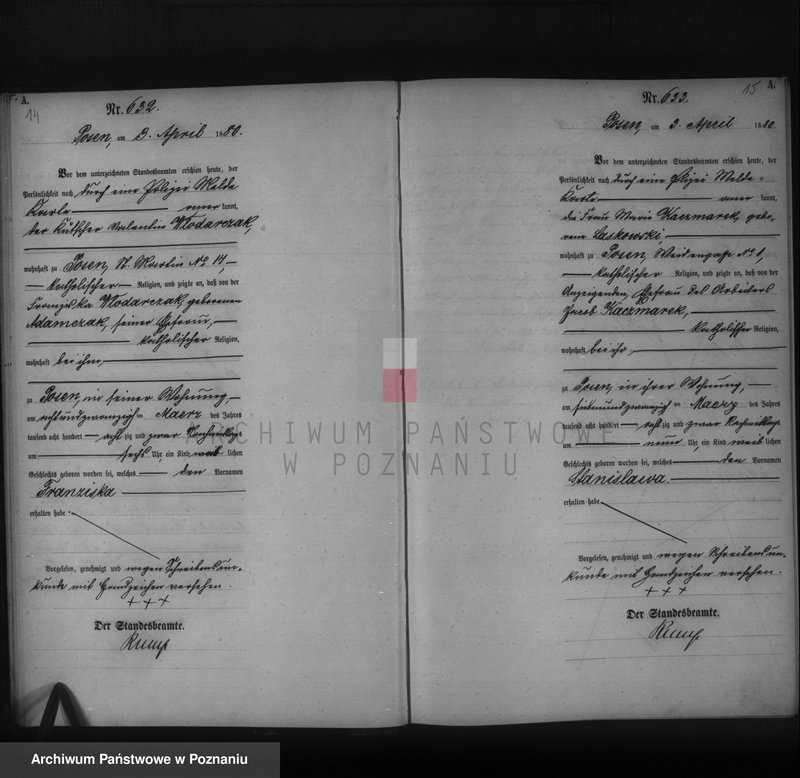 A.
14
Nr. 632.
Posen, am 3. April 1880.
Vor dem unterzeichneten Standesbeamten erschien heute, der
Persönlichkeit nach durch eine Polizei Melde
Karte anerkannt,
der Kutscher Valentin Wlodarczak,
wohnhaft zu Posen, St. Martin No 14,
katholischer Religion, und zeigte an, daß von der
Franziska Wlodarczak, geborenen
Adamczak, seiner Ehefrau,
katholischer Religion,
wohnhaft bei ihm,
zu Posen, in seiner Wohnung,
am achtundzwanzigsten Maerz des Jahres
tausend acht hundert achtzig und zwar Nachmittags
um sechs Uhr, ein Kind weiblichen
Geschlechts geboren worden sei, welches den Vornamen
Franziska
erhalten habe.
Vorgelesen, genehmigt und wegen Schreibensun-
kunde mit Handzeichen versehen.
+++
Der Standesbeamte.
Kump
15
A.
Nr. 633.
Posen, am 3. April 1880.
Vor dem unterzeichneten Standesbeamten erschien heute, der
Persönlichkeit nach durch eine Polizei Melde-
Karte anerkannt,
die Frau Maria Kaczmarek, gebo-
rene Laskowski
wohnhaft zu Posen, Weidengasse No 1,
katholischer Religion, und zeigte an, daß von der
Anzeigenden, Ehefrau des Arbeiters
Jacob Kaczmarek,
katholischer Religion,
wohnhaft bei ihr,
zu Posen, in ihrer Wohnung,
am siebenundzwanzigsten Maerz des Jahres
tausend acht hundert achtzig und zwar Nachmittags
um neun Uhr, ein Kind weiblichen
Geschlechts geboren worden sei, welches den Vornamen
Stanislawa
erhalten habe
Vorgelesen, genehmigt und wegen Schreibensun-
kunde mit Handzeichen versehen.
+++
Der Standesbeamte.
Kump
ARCHIWUM PAŃSTWOWE
W POZNANIU
Archiwum Państwowe w Poznaniu